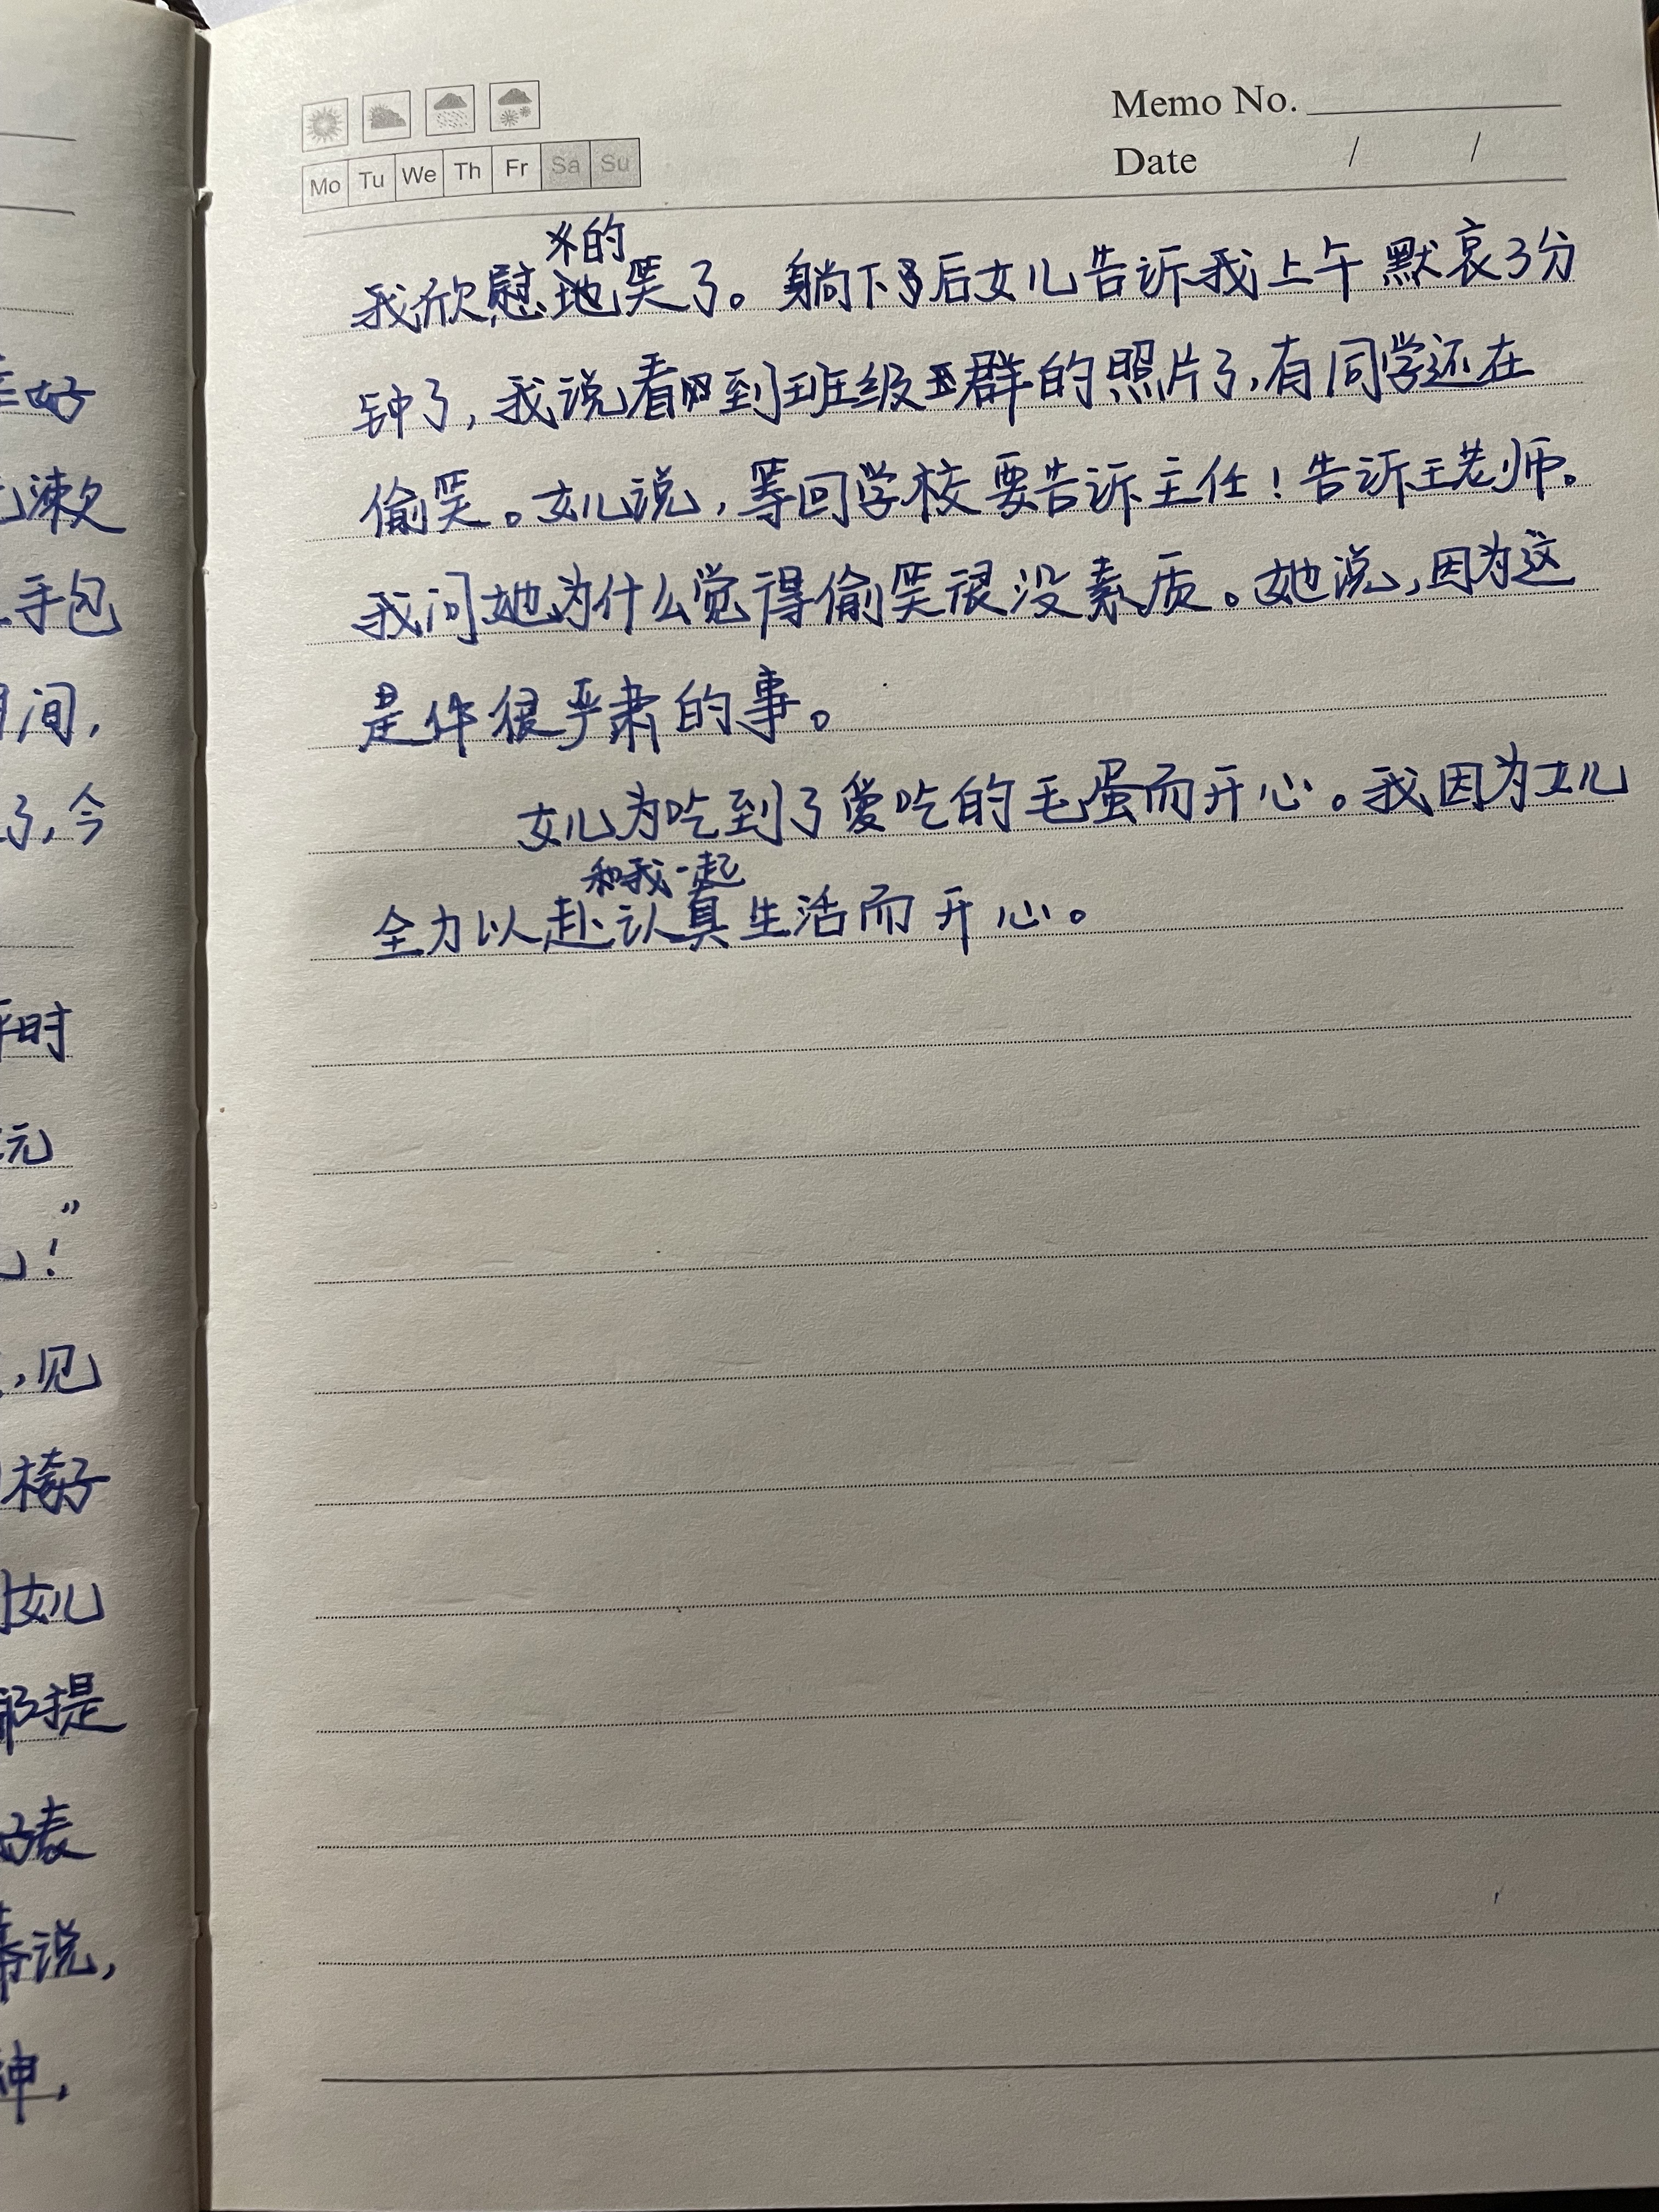 Memo No.
Mo Tu We Th Fr Sa Su
Date / /
的
我欣慰地笑了。躺下后女儿告诉我上午默哀3分
钟了,我说看到班级群的照片了,有同学还在
偷笑。女儿说,等回学校要告诉主任!告诉王老师。
我问她为什么觉得偷笑很没素质。她说,因为这
是件很严肃的事。
女儿为吃到了爱吃的毛蛋而开心。我因为女儿
和我一起
全力以赴认真生活而开心。
好
漱
手包
间,
了,今
时
元
”
!
,见
椅子
女儿
提
表
说,
神,